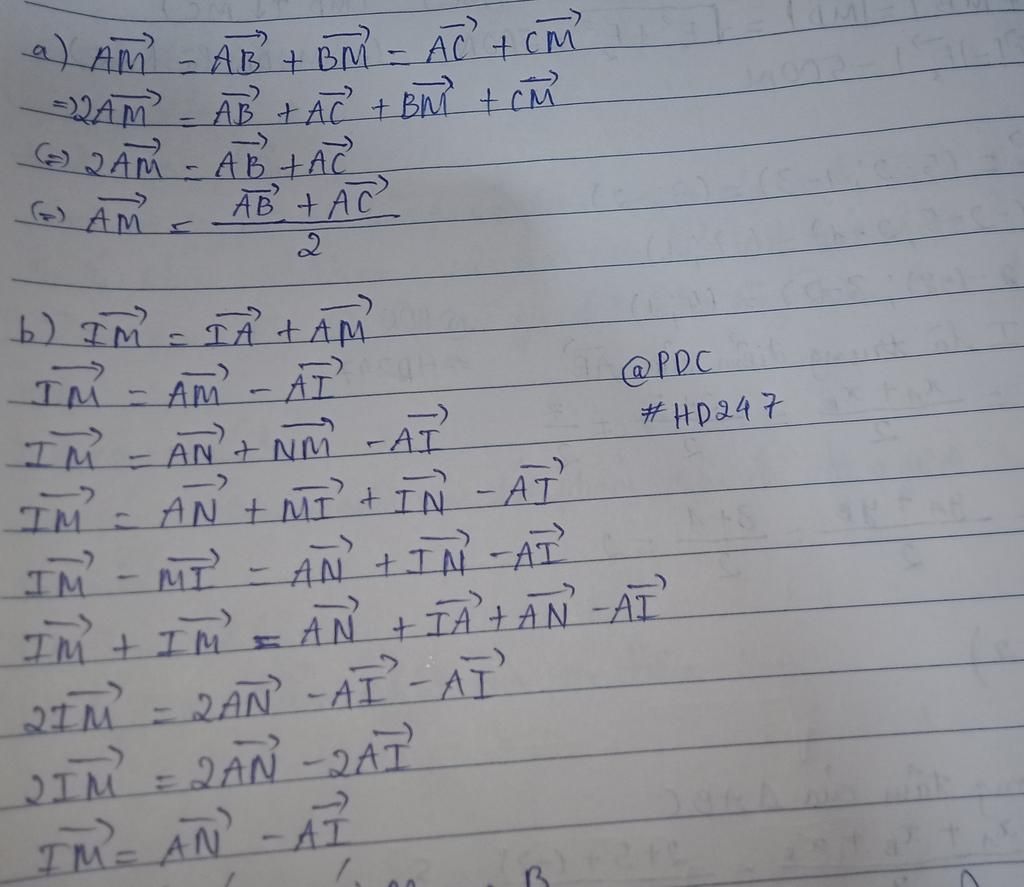 a) AM→ = AB→ + BM→ = AC→ + CM→
=> 2AM→ = AB→ + AC→ + BM→ + CM→
(=) 2AM→ = AB→ + AC→
(=) AM→ = (AB→ + AC→) / 2
b) IM→ = IA→ + AM→
IM→ = AM→ - AI→
@PDC
#HD247
IM→ = AN→ + NM→ - AI→
IM→ = AN→ + MI→ + IN→ - AI→
IM→ - MI→ = AN→ + IN→ - AI→
IM→ + IM→ = AN→ + IA→ + AN→ - AI→
2IM→ = 2AN→ - AI→ - AI→
2IM→ = 2AN→ - 2AI→
IM→ = AN→ - AI→